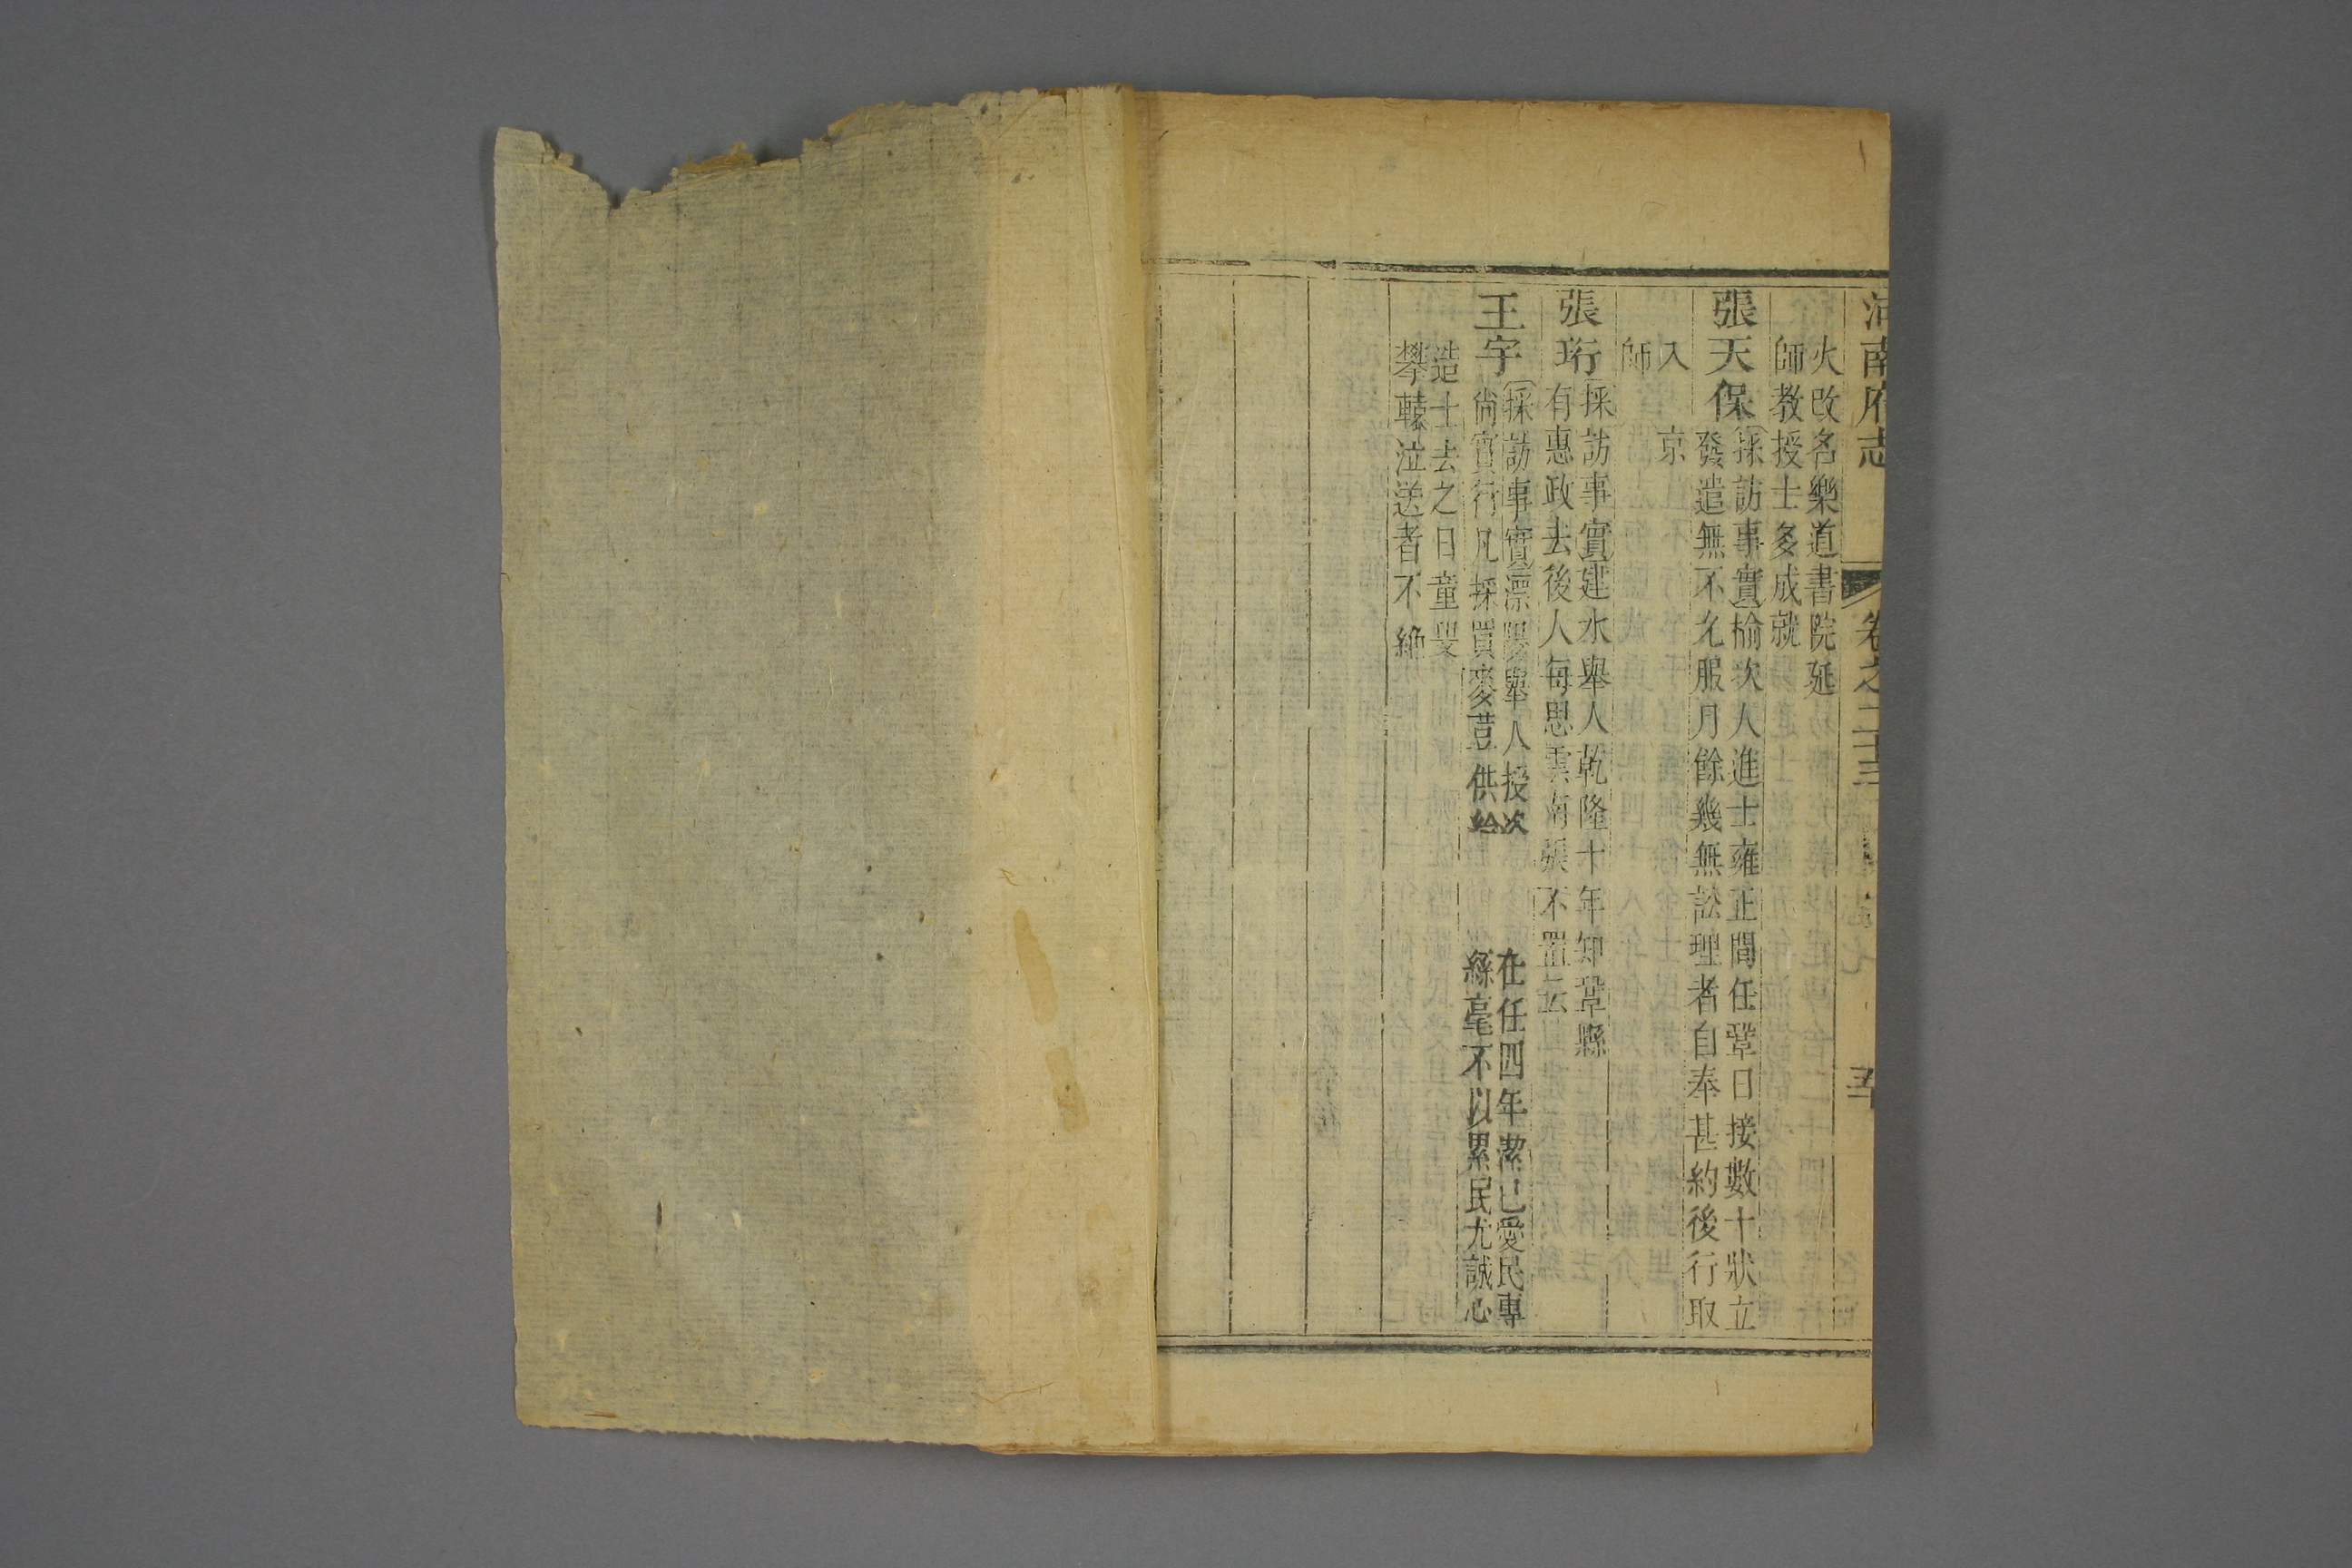 河南府志
卷之二十三
火改名樂道書院延
師教授士多成就
張天保
採訪事實榆次人進士雍正間任鞏日接數十狀立
發遣無不允服月餘幾無訟理者自奉甚約後行取
入京
師
張珩
採訪事實建水舉人乾隆十年知鞏縣
有惠政去後人每思雲南張不置云
王宇
採訪事實漂陽舉人授次 在任四年潔己愛民專
尚實行凡採買麥荳供給 絲毫不以累民尤誠心
造士去之日童叟
攀轅泣送者不絶